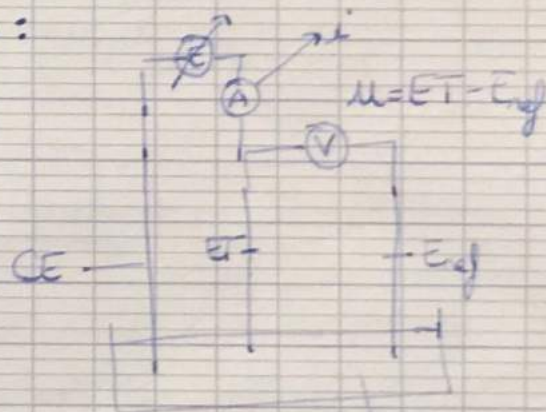 :
E
i
A
u = ET - Eref
V
CE
ET
Eref